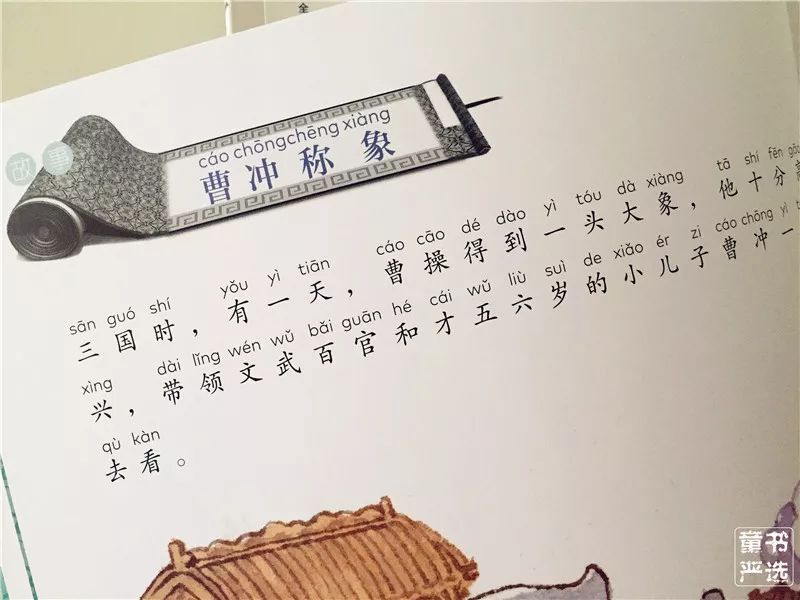 全
故事
cáo chōng chēng xiàng
曹冲称象
sān guó shí yǒu yì tiān cáo cāo dé dào yì tóu dà xiàng tā shí fēn
三国时，有一天，曹操得到一头大象，他十分
xìng dài lǐng wén wǔ bǎi guān hé cái wǔ liù suì de xiǎo ér zi cáo chōng yì
兴，带领文武百官和才五六岁的小儿子曹冲一
qù kàn
去看。
童书
严选